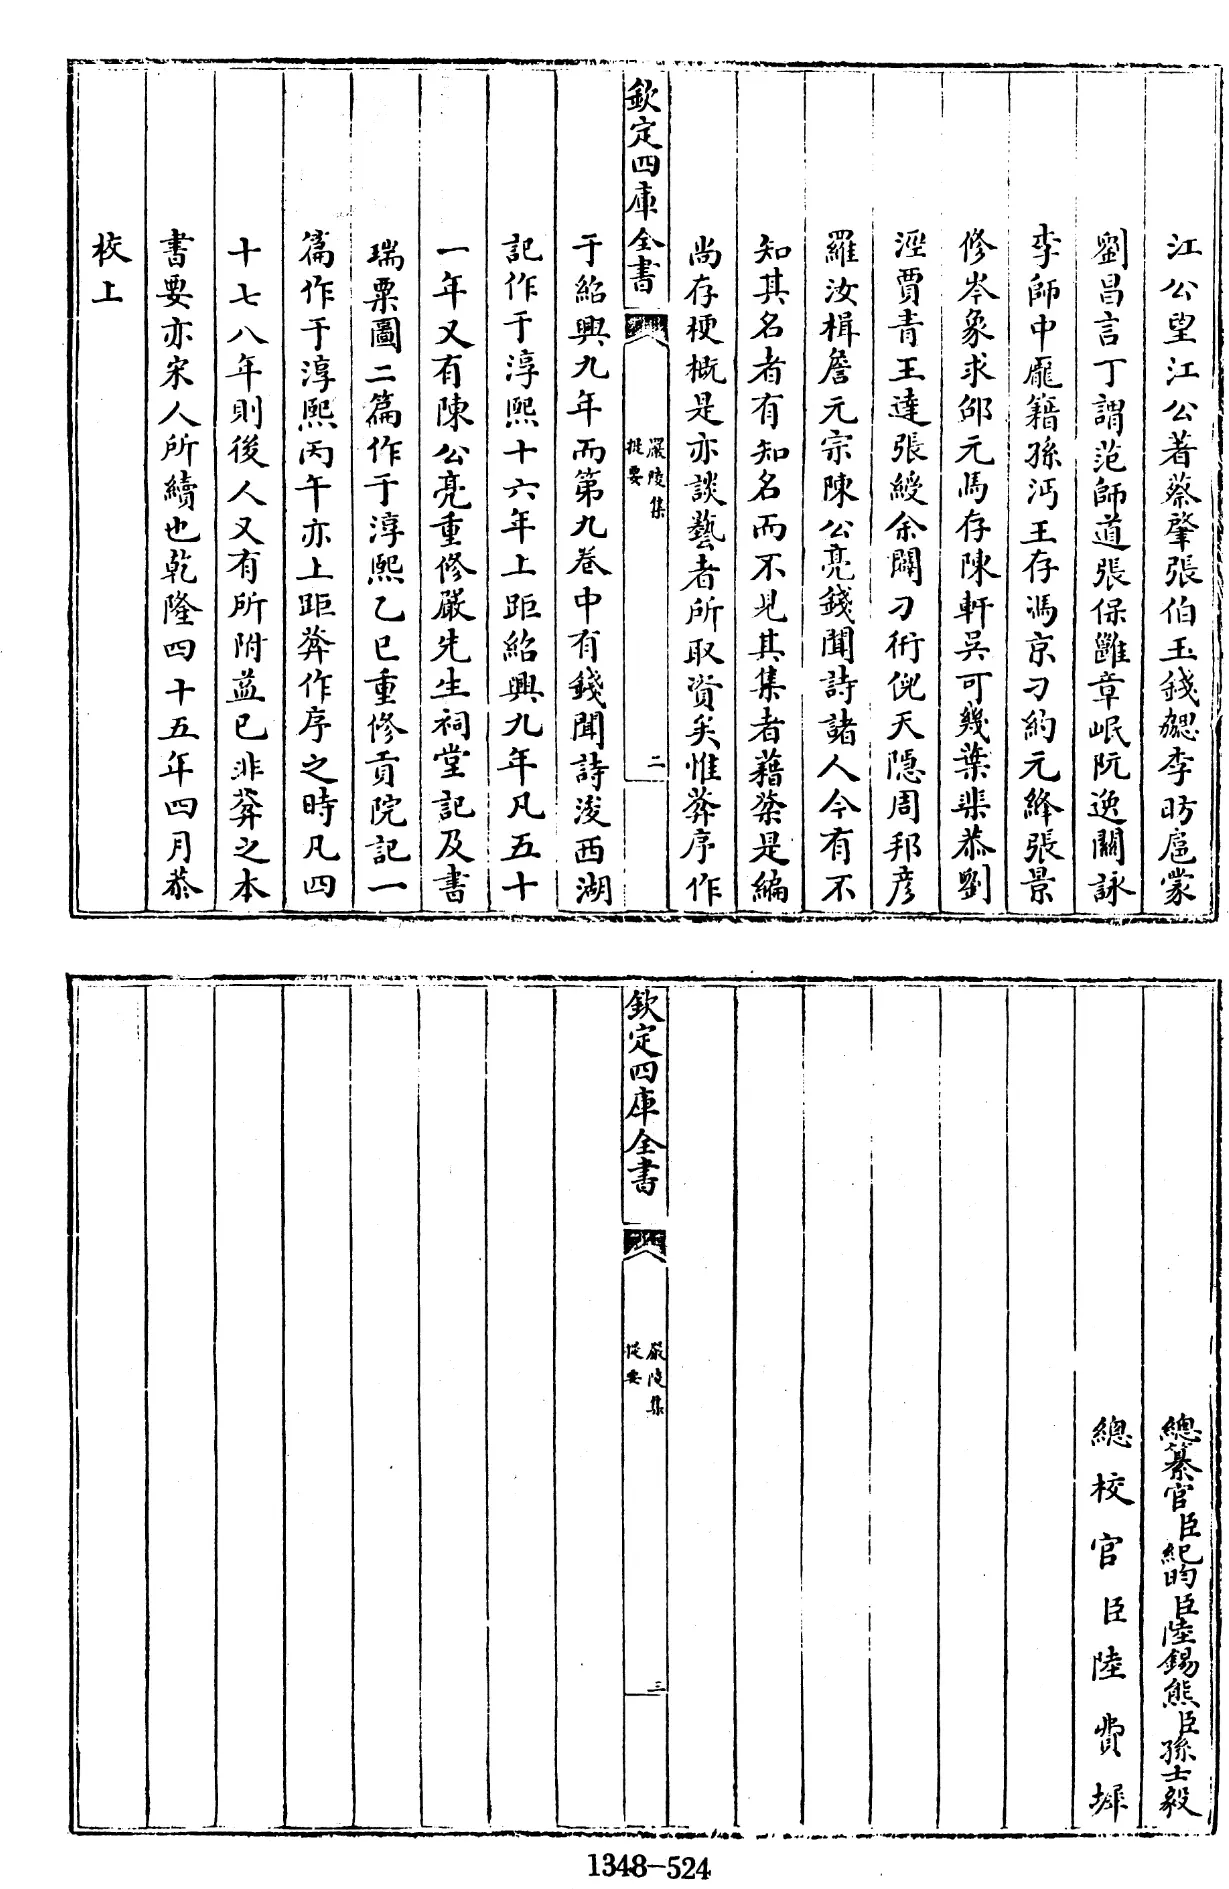 江公望江公著蔡肇張伯玉錢勰李昉扈蒙
劉昌言丁謂范師道張保雝章岷阮逸關詠
李師中龐籍孫沔王存馮京刁約元絳張景
修岑象求邵元馮存陳軒吳可幾葉棐恭劉
涇賈青王達張綬余闢刁衎倪天隱周邦彥
羅汝楫詹元宗陳公亮錢聞詩諸人今有不
知其名者有知名而不見其集者藉棻是編
尚存梗概是亦談藝者所取資矣惟棻序作
欽定四庫全書
嚴陵集
提要
二
于紹興九年而第九卷中有錢聞詩浚西湖
記作于淳熙十六年上距紹興九年凡五十
一年又有陳公亮重修嚴先生祠堂記及書
瑞粟圖二篇作于淳熙乙巳重修貢院記一
篇作于淳熙丙午亦上距棻作序之時凡四
十七八年則後人又有所附益已非棻之本
書要亦宋人所續也乾隆四十五年四月恭
校上
總纂官臣紀昀臣陸錫熊臣孫士毅
總校官臣陸費墀
欽定四庫全書
嚴陵集
提要
三
1348-524